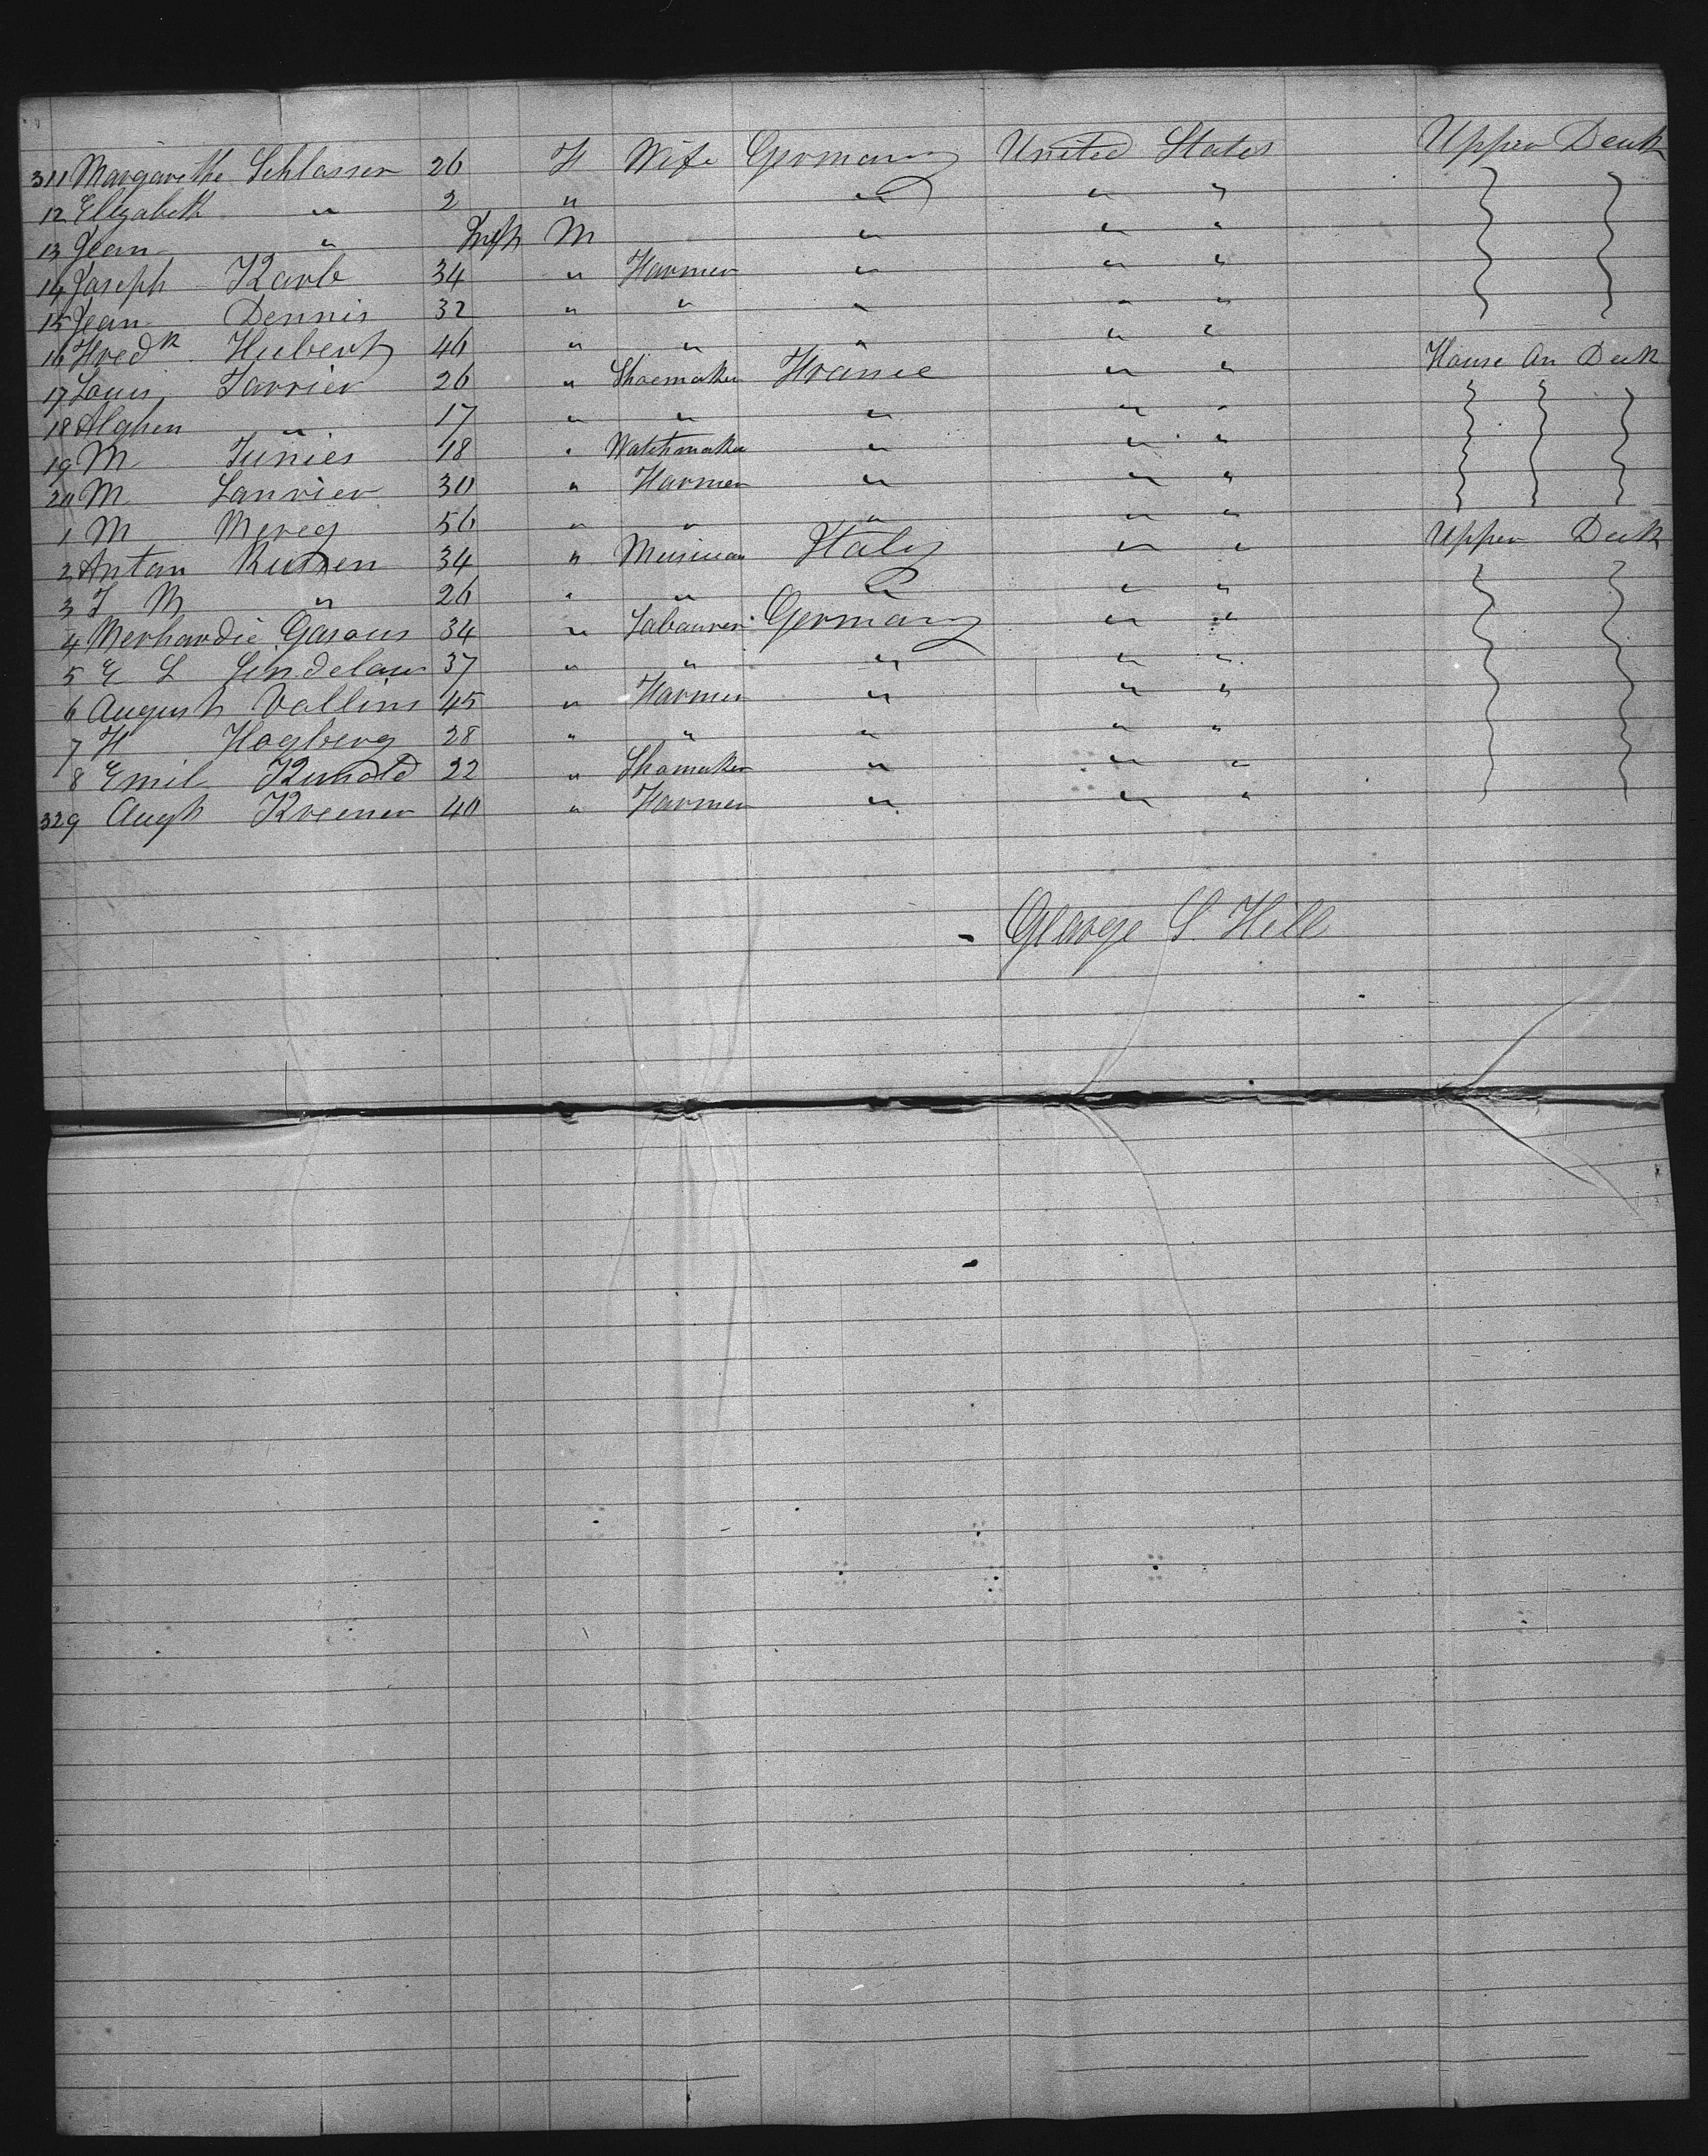 311 Margarethe Schlosser 26 F Wife Germany United States Upper Deck
12 Elizabeth " 2 " " " "
13 Jean " Inft M " " "
14 Joseph Karb 34 " Farmer " " "
15 Jean Dennis 32 " " " " "
16 Fredk Hubert 46 " " " " "
17 Louis Tarrier 26 " Shoemaker France " " House On Deck
18 " 17 " " " " "
19 M Junies 18 " Watchmaker " " "
20 M Lanrier 30 " Farmer " " "
1 M Mereg 56 " " " " "
2 Anton 34 " Musician Italy " " Upper Deck
3 J M " 26 " " " " "
4 Merhardie Garous 34 " Labourer Germany " "
5 E L 37 " " " " "
6 August Vallins 45 " Farmer " " "
7 H Hogberg 28 " " " " "
8 Emil Kunold 22 " Shomaker " " "
329 Augt Kremer 40 " Farmer " " "
George S. Hill